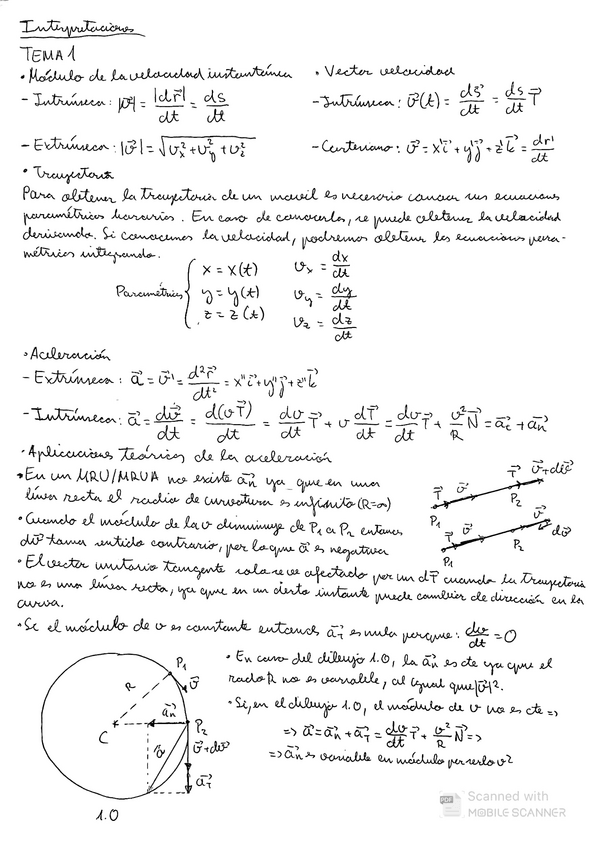 Interpretaciones
TEMA 1
• Módulo de la velocidad instantánea
- Intrínseca: |v⃗| = |dr⃗|/dt = ds/dt
- Extrínseca: |v⃗| = √(vx² + vy² + vz²)
• Vector velocidad
- Intrínseca: v⃗(t) = ds⃗/dt = ds/dt T⃗
- Cartesiano: v⃗ = x'i⃗ + y'j⃗ + z'k⃗ = dr⃗/dt
• Trayectoria
Para obtener la trayectoria de un movil es necesario conocer sus ecuaciones
paramétricas horarias. En caso de conocerlas, se puede obtener la velocidad
derivando. Si conocemos la velocidad, podremos obtener las ecuaciones para-
métricas integrando.
Paramétricas { x = x(t)
y = y(t)
z = z(t)
vx = dx/dt
vy = dy/dt
vz = dz/dt
• Aceleración
- Extrínseca: a⃗ = v⃗' = d²r⃗/dt² = x''i⃗ + y''j⃗ + z''k⃗
- Intrínseca: a⃗ = dv⃗/dt = d(vT⃗)/dt = dv/dt T⃗ + v dT⃗/dt = dv/dt T⃗ + v²/R N⃗ = a⃗t + a⃗n
• Aplicaciones teóricas de la aceleración
• En un MRU/MRUA no existe a⃗n ya que en una
línea recta el radio de curvatura es infinito (R=∞)
• Cuando el módulo de la v disminuye de P1 a P2 entonces
dv⃗ toma sentido contrario, por lo que a⃗ es negativa
T⃗ v⃗ T⃗ v⃗+dv⃗
P1 P2
T⃗ v⃗ v⃗ dv⃗
P1 P2
• El vector unitario tangente solo se ve afectado por un dT⃗ cuando la trayectoria
no es una línea recta, ya que en un cierto instante puede cambiar de dirección en la
curva.
• Si el módulo de v es constante entonces a⃗T es nula porque: dv/dt = 0
• En caso del dibujo 1.0, la a⃗n es cte ya que el
radio R no es variable, al igual que |v⃗|².
• Si, en el dibujo 1.0, el módulo de v no es cte =>
=> a⃗ = a⃗n + a⃗T = dv/dt T⃗ + v²/R N⃗ =>
=> a⃗n es variable en módulo por serlo v²
P1
R
v⃗
a⃗n
P2
C
v⃗+dv⃗
a⃗
a⃗T
1.0
PDF
Scanned with
MOBILE SCANNER